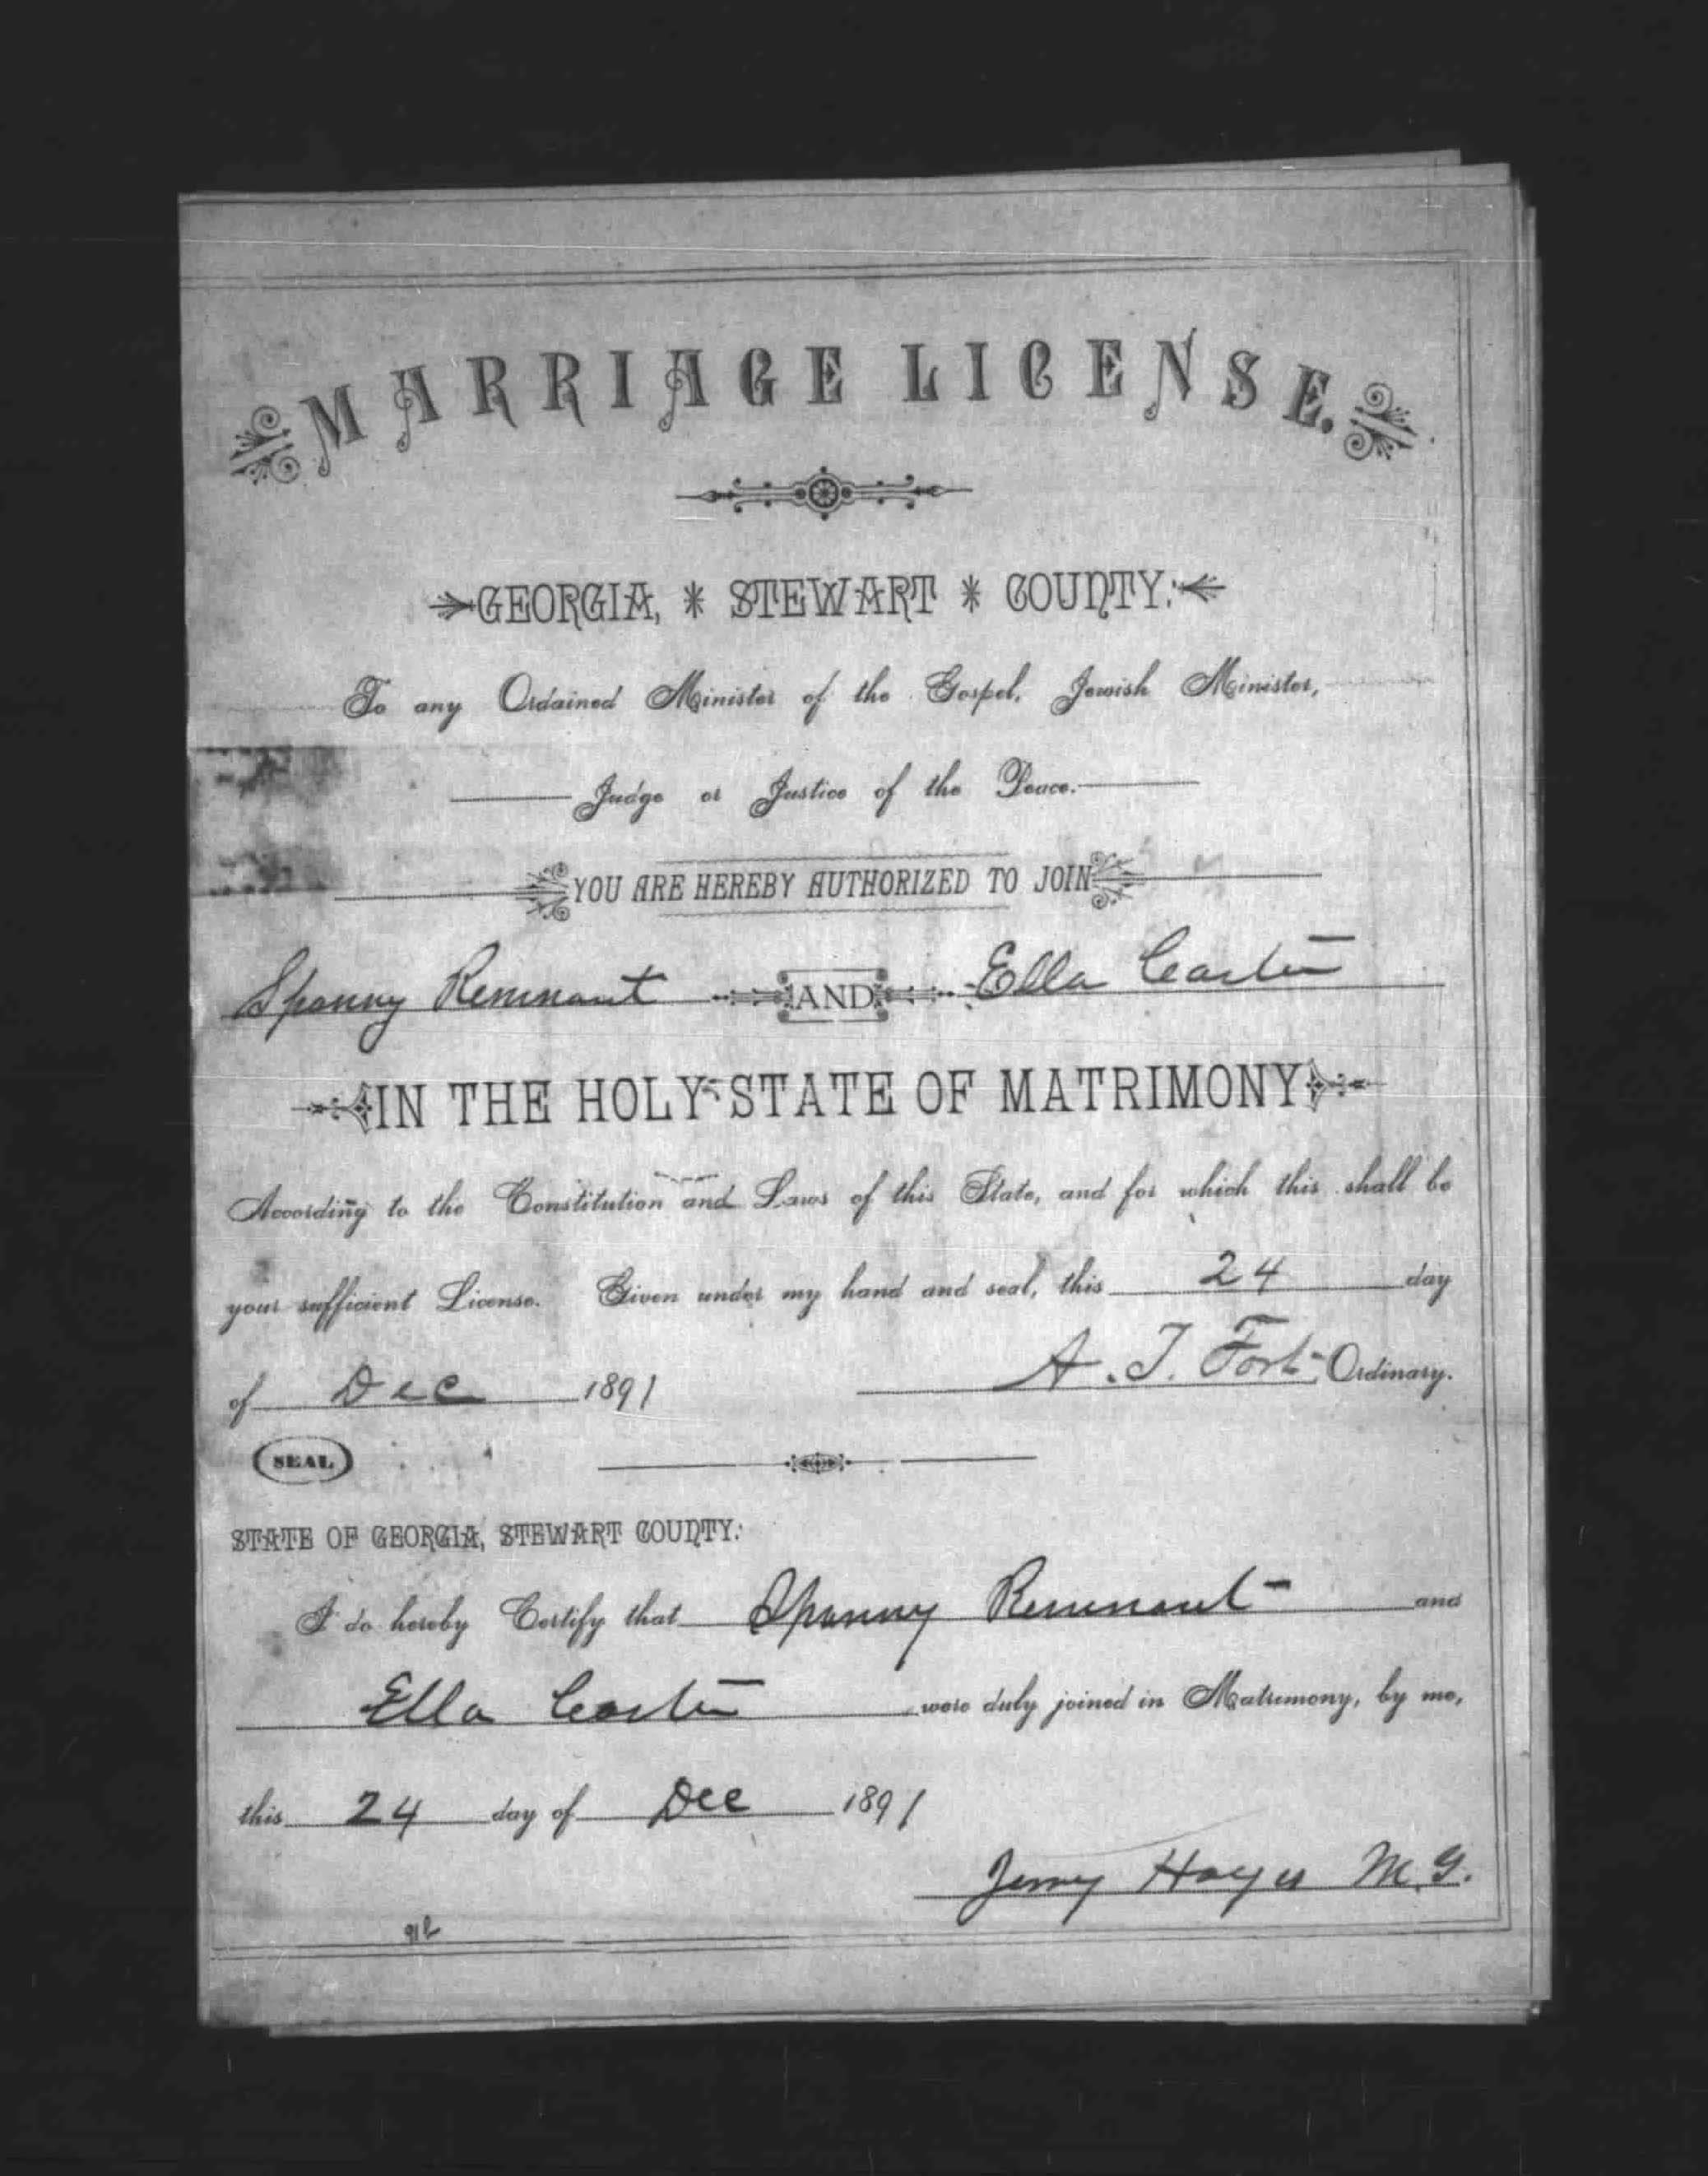 MARRIAGE LICENSE.
GEORGIA, * STEWART * COUNTY:
To any Ordained Minister of the Gospel, Jewish Minister,
Judge or Justice of the Peace.
YOU ARE HEREBY AUTHORIZED TO JOIN
Spanny Remnant AND Ella Carter
IN THE HOLY STATE OF MATRIMONY
According to the Constitution and Laws of this State, and for which this shall be
your sufficient License. Given under my hand and seal, this 24 day
of Dec 1891 A. T. Fort Ordinary.
SEAL
STATE OF GEORGIA, STEWART COUNTY:
I do hereby Certify that Spanny Remnant and
Ella Carter were duly joined in Matrimony, by me,
this 24 day of Dec 1891
Jerry Hayes M.G.